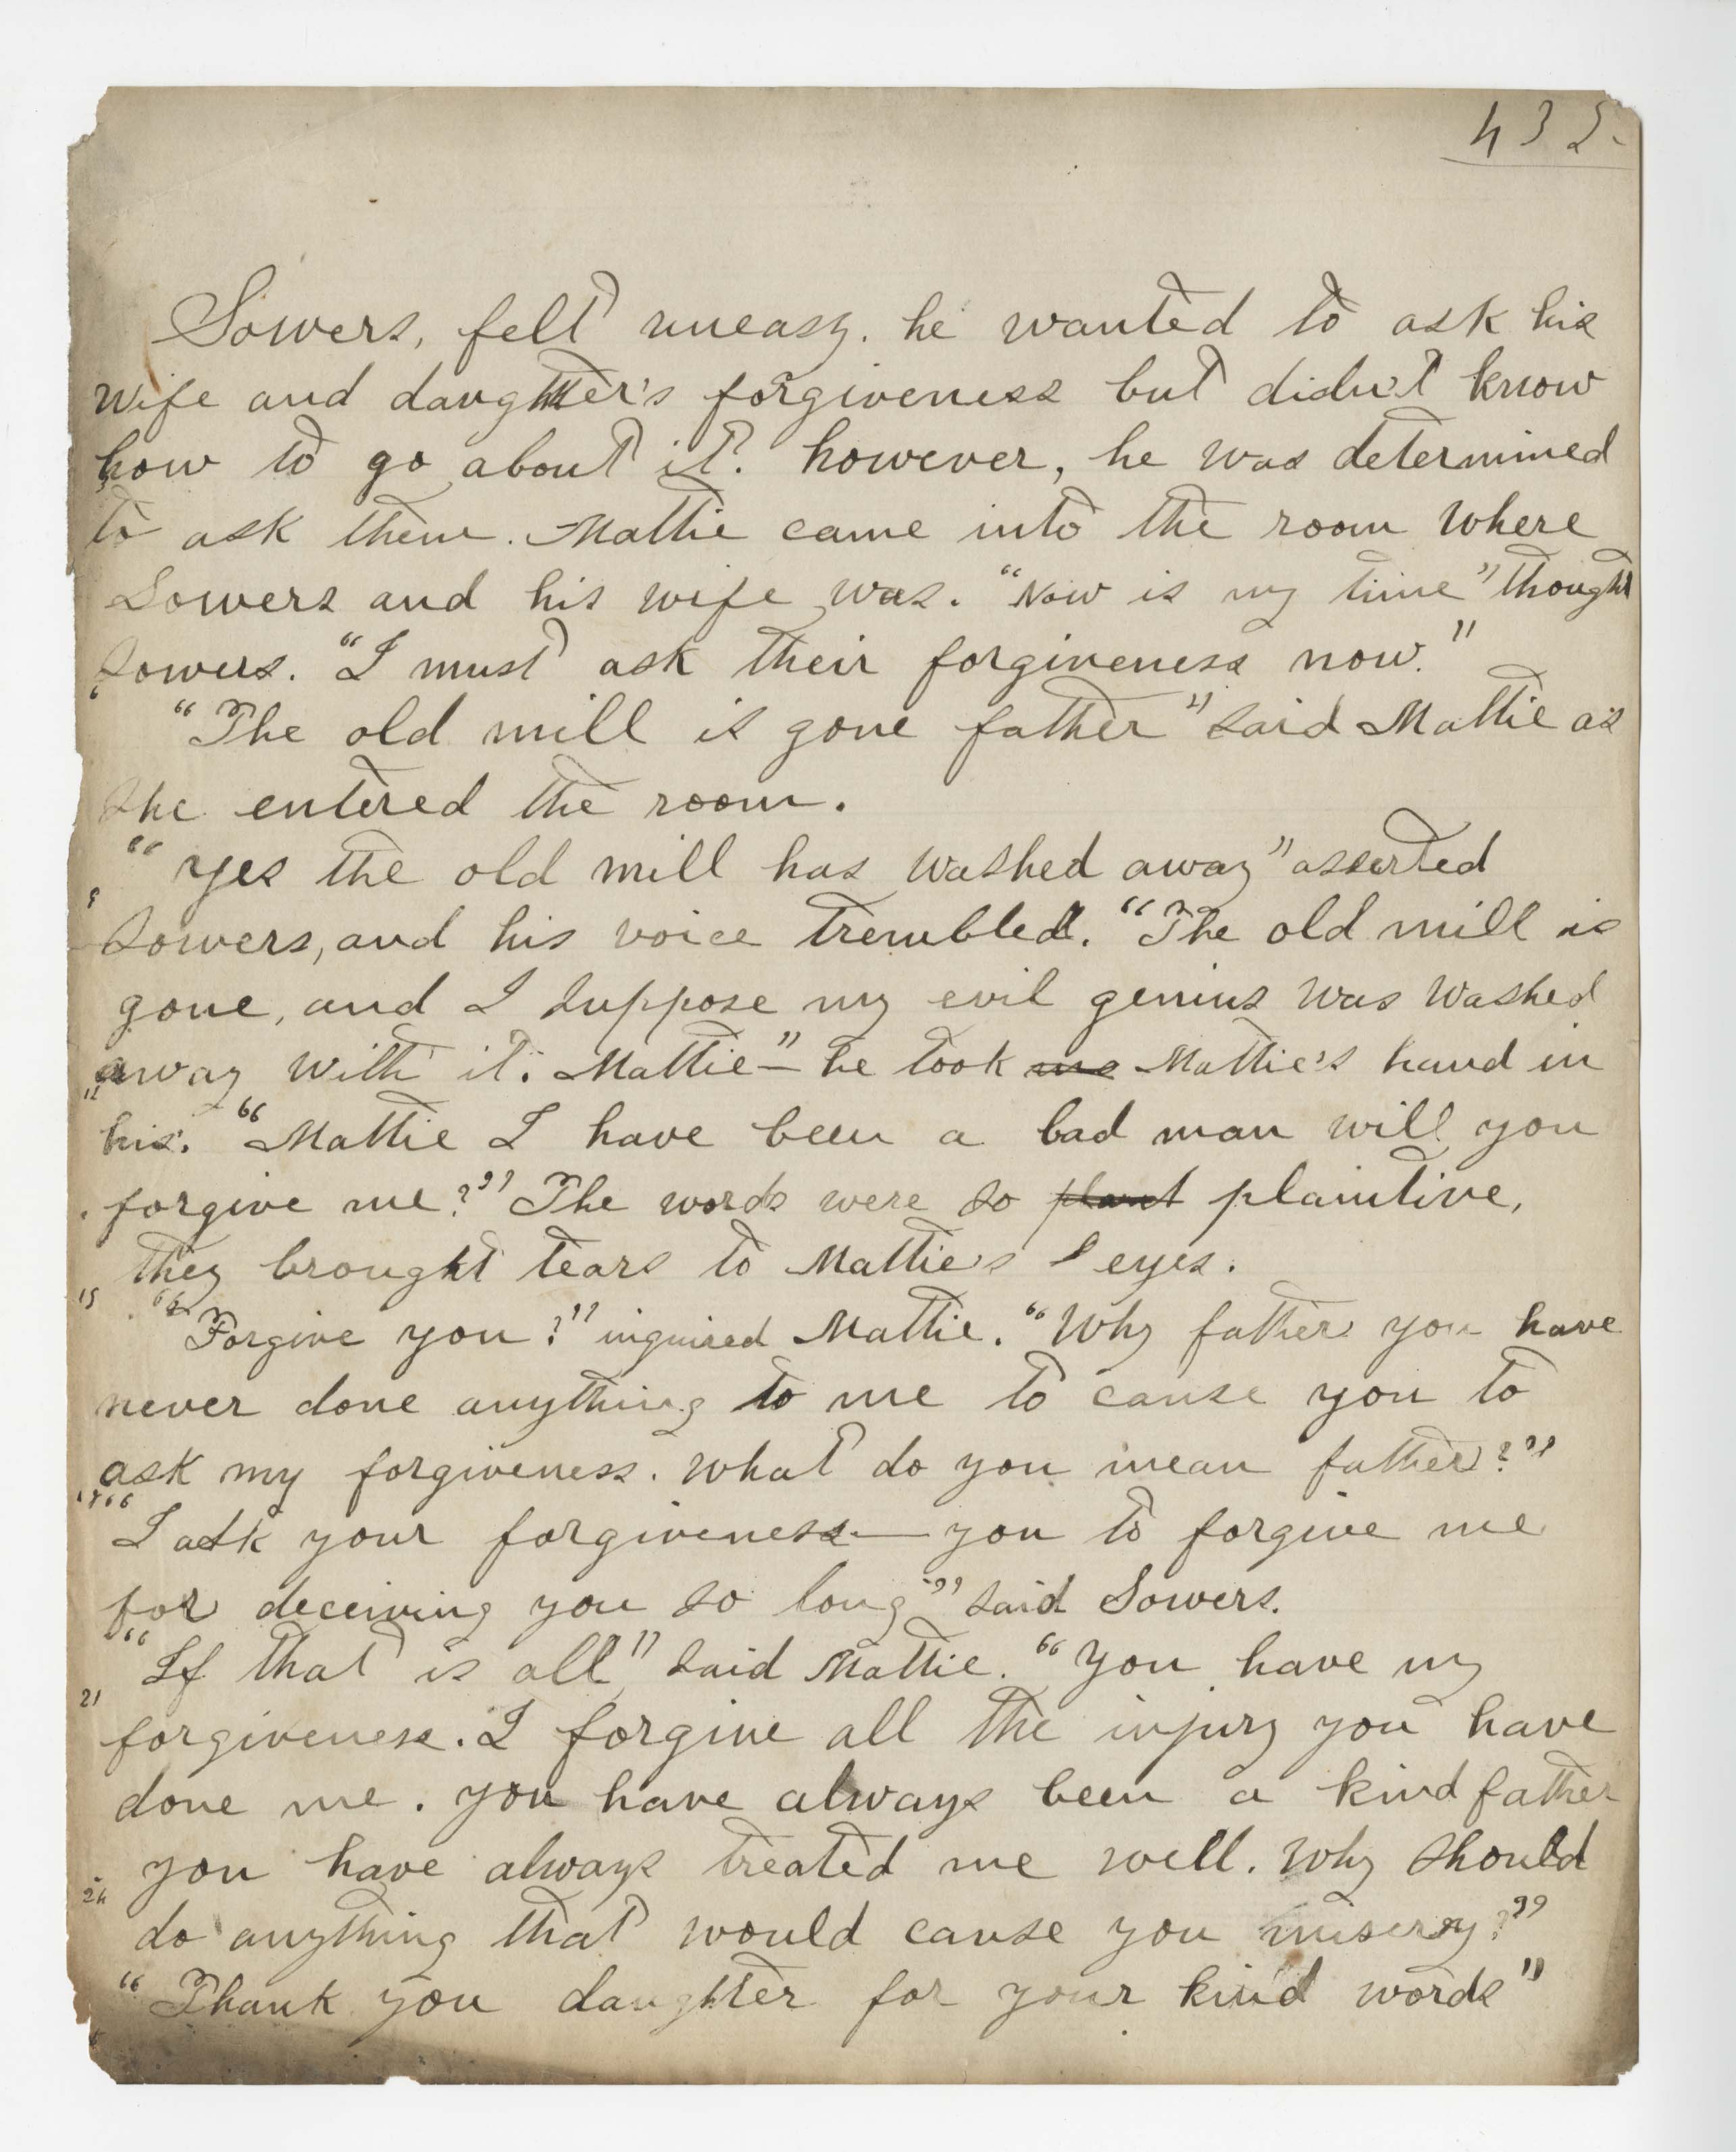 435.
Sowers, felt uneasy. he wanted to ask his
wife and daughter's forgiveness but didn't know
how to go about it. however, he was determined
to ask them. Mattie came into the room where
Sowers and his wife was. "Now is my time" thought
Sowers. "I must ask their forgiveness now."
"The old mill is gone father" said Mattie as
she entered the room.
"Yes the old mill has washed away" asserted
Sowers, and his voice trembled. "The old mill is
gone, and I suppose my evil genius was washed
away with it. Mattie—" he took Mattie's hand in
his. "Mattie I have been a bad man will you
forgive me?" The words were so plaintive,
they brought tears to Mattie's eyes.
"Forgive you?" inquired Mattie. "Why father you have
never done anything to me to cause you to
ask my forgiveness. What do you mean father?"
"I ask your forgiveness—you to forgive me
for deceiving you so long" said Sowers.
"If that is all" said Mattie. "You have my
forgiveness. I forgive all the injury you have
done me. you have always been a kind father
you have always treated me well. Why should
do anything that would cause you misery?"
"Thank you daughter for your kind words"